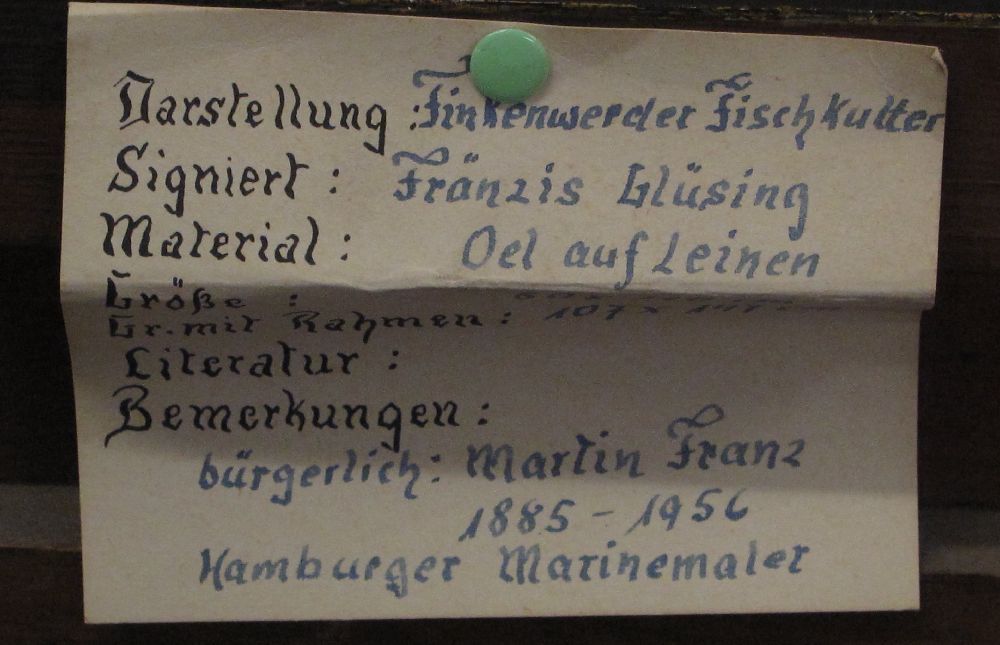 Darstellung : Finkenwerder Fischkutter
Signiert : Fränzis Glüsing
Material : Oel auf Leinen
Größe :
Gr. mit Rahmen : 107 x
Literatur :
Bemerkungen :
bürgerlich: Martin Franz
1885 - 1956
Hamburger Marinemaler